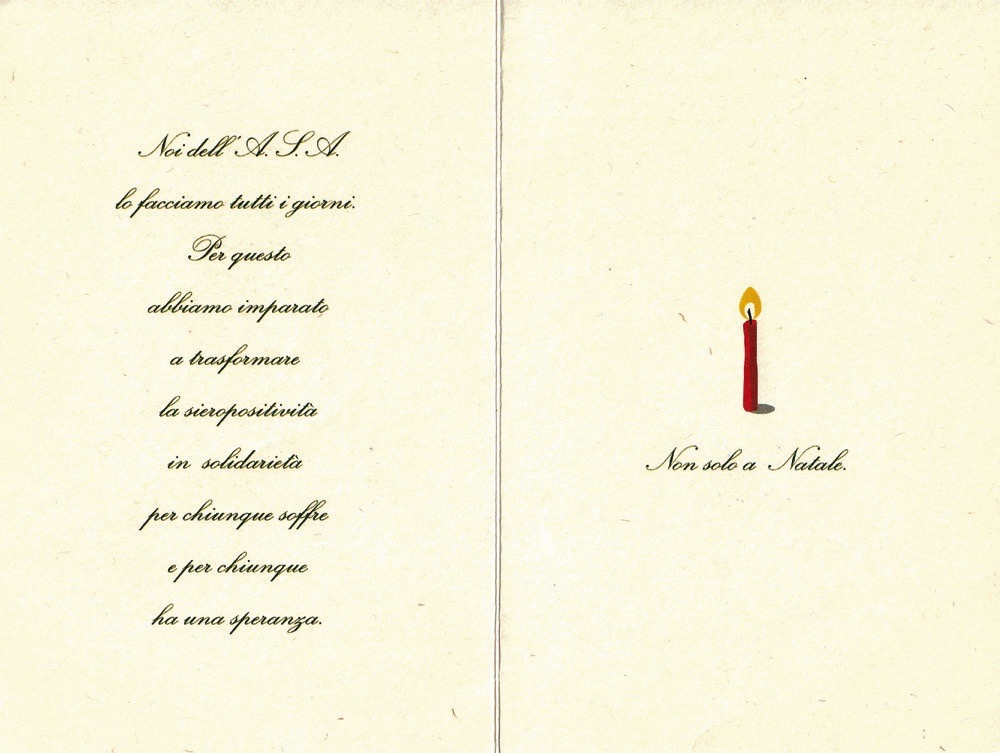 Noi dell' A.S.A.
lo facciamo tutti i giorni.
Per questo
abbiamo imparato
a trasformare
la sieropositività
in solidarietà
per chiunque soffre
e per chiunque
ha una speranza.
Non solo a Natale.